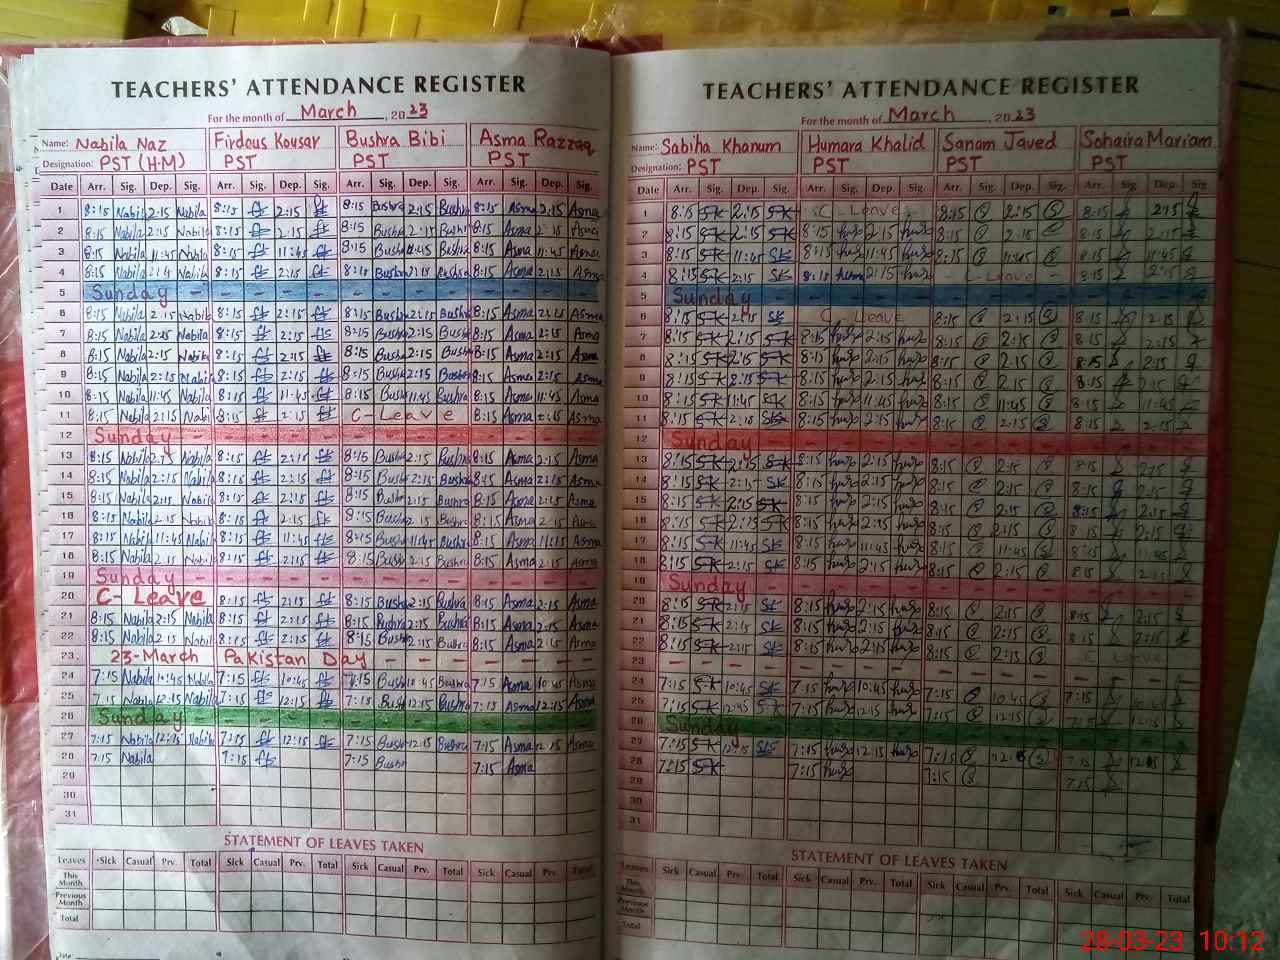 TEACHERS' ATTENDANCE REGISTER
For the month of March, 2023
Name: Nabila Naz Firdous Kousar Bushra Bibi Asma Razzaq
Designation: PST (H·M) PST PST PST
Date Arr. Sig. Dep. Sig. Arr. Sig. Dep. Sig. Arr. Sig. Dep. Sig. Arr. Sig. Dep. Sig.
1 8:15 Nabila 2:15 Nabila 8:15 2:15 8:15 Bushra 2:15 Bushra 8:15 Asma 2:15 Asma
2 8:15 Nabila 2:15 Nabila 8:15 2:15 8:15 Bushra 2:15 Bushra 8:15 Asma 2:15 Asma
3 8:15 Nabila 11:45 Nabila 8:15 11:45 8:15 Bushra 11:45 Bushra 8:15 Asma 11:45 Asma
4 8:15 Nabila Nabila 8:15 2:15 8:15 Bushra 2:15 Bushra 8:15 Asma 2:15 Asma
5 Sunday - - - - - - - - - - - - -
6 8:15 Nabila 2:15 Nabila 8:15 2:15 8:15 Bushra 2:15 Bushra 8:15 Asma 2:15 Asma
7 8:15 Nabila 2:15 Nabila 8:15 2:15 8:15 Bushra 2:15 Bushra 8:15 Asma 2:15 Asma
8 8:15 Nabila 2:15 Nabila 8:15 2:15 8:15 Bushra 2:15 Bushra 8:15 Asma 2:15 Asma
9 8:15 Nabila 2:15 Nabila 8:15 2:15 8:15 Bushra 2:15 Bushra 8:15 Asma 2:15 Asma
10 8:15 Nabila 11:45 Nabila 8:15 11:45 8:15 Bushra 11:45 Bushra 8:15 Asma 11:45 Asma
11 8:15 Nabila 2:15 Nabi 8:15 2:15 C-Leave 8:15 Asma 2:15 Asma
12 Sunday - - - - - - - - - - - - -
13 8:15 Nabila 2:15 Nabila 8:15 2:15 8:15 Bushra 2:15 Bushra 8:15 Asma 2:15 Asma
14 8:15 Nabila 2:15 Nabila 8:15 2:15 8:15 Bushra 2:15 Bushra 8:15 Asma 2:15 Asma
15 8:15 Nabila 2:15 Nabila 8:15 2:15 8:15 Bushra 2:15 Bushra 8:15 Asma 2:15 Asma
16 8:15 Nabila 2:15 Nabila 8:15 2:15 8:15 Bushra 2:15 Bushra 8:15 Asma 2:15 Asma
17 8:15 Nabila 11:45 Nabila 8:15 11:45 8:45 Bushra 11:45 Bushra 8:15 Asma Asma
18 8:15 Nabila 2:15 Nabila 8:15 2:15 8:15 Bushra 2:15 Bushra 8:15 Asma 2:15 Asma
19 Sunday - - - - - - - - - - - - -
20 C- Leave 8:15 2:15 8:15 Bushra 2:15 Bushra 8:15 Asma 2:15 Asma
21 8:15 Nabila 2:15 Nabila 8:15 2:15 8:15 Bushra 2:15 Bushra 8:15 Asma 2:15 Asma
22 8:15 Nabila 2:15 Nabila 8:15 2:15 8:15 Bushra 2:15 Bushra 8:15 Asma 2:15 Asma
23. 23-March Pakistan Day - - - - - - -
24 7:15 Nabila 10:45 Nabila 7:15 10:45 7:15 Bushra 10:45 Bushra 7:15 Asma 10:45 Asma
25 7:15 Nabila 12:15 Nabila 7:15 12:15 7:15 Bush 12:15 Bushra 7:15 Asma 12:15 Asma
26 Sunday - - - - - - - - - - - - -
27 7:15 Nabila 12:15 Nabila 7:15 12:15 7:15 Bushra 12:15 Bushra 7:15 Asma 12:15 Asma
28 7:15 Nabila 7:15 7:15 Bushra 7:15 Asma
29
30
31
STATEMENT OF LEAVES TAKEN
Leaves Sick Casual Prv. Total Sick Casual Prv. Total Sick Casual Prv. Total Sick Casual Prv. Total
This Month
Previous Month
Total
TEACHERS' ATTENDANCE REGISTER
For the month of March, 2023
Name: Sabiha Khanum Humara Khalid Sanam Javed Sohaira Mariam
Designation: PST PST PST PST
Date Arr. Sig. Dep. Sig. Arr. Sig. Dep. Sig. Arr. Sig. Dep. Sig. Arr. Sig. Dep. Sig
1 8:15 SK 2:15 SK C - Leave 8:15 2:15 8:15 2:15
2 8:15 SK 2:15 SK 8:15 2:15 8:15 2:15 8:15 2:15
3 8:15 SK 11:45 SK 8:15 11:45 8:15 11:45 8:15 11:45
4 8:15 SK 2:15 SK 8:15 2:15 - Leave - 8:15 2:15
5 Sunday - - - - - - - - - - - - -
6 8:15 SK 2:15 SK C - Leave 8:15 2:15 8:15 2:15
7 8:15 SK 2:15 SK 8:15 2:15 8:15 2:15 8:15 2:15
8 8:15 SK 2:15 SK 8:15 2:15 8:15 2:15 8:15 2:15
9 8:15 SK 2:15 SK 8:15 2:15 8:15 2:15 8:15 2:15
10 8:15 SK 11:45 SK 8:15 11:45 8:15 11:45 8:15 11:45
11 8:15 SK 2:15 SK 8:15 2:15 8:15 2:15 8:15 2:15
12 Sunday - - - - - - - - - - - - -
13 8:15 SK 2:15 SK 8:15 2:15 8:15 2:15 8:15 2:15
14 8:15 SK 2:15 SK 8:15 2:15 8:15 2:15 8:15 2:15
15 8:15 SK 2:15 SK 8:15 2:15 8:15 2:15 8:15 2:15
16 8:15 SK 2:15 SK 8:15 2:15 8:15 2:15 8:15 2:15
17 8:15 SK 11:45 SK 8:15 11:45 8:15 11:45 8:15 11:45
18 8:15 SK 2:15 SK 8:15 2:15 8:15 2:15 8:15 2:15
19 Sunday - - - - - - - - - - - - -
20 8:15 SK 2:15 SK 8:15 2:15 8:15 2:15 8:15
21 8:15 SK 2:15 SK 8:15 2:15 8:15 2:15 8:15 2:15
22 8:15 SK 2:15 SK 8:15 2:15 8:15 2:15 C Leave
23 - - - - - - - - -
24 7:15 SK 10:45 SK 7:15 10:45 7:15 10:45 7:15 10:45
25 7:15 SK 12:45 SK 7:15 12:15 7:15 12:15 7:15 12:15
26 Sunday - - - - - - - - - - - - -
27 7:15 SK 12:15 SK 7:15 12:15 7:15 7:15 12:15
28 7:15 SK 7:15 7:15 7:15
29
30
31
STATEMENT OF LEAVES TAKEN
Leaves Sick Casual Prv. Total Sick Casual Prv. Total Sick Casual Prv. Total Sick Casual Prv. Total
This Month
Previous Month
Total
28-03-23 10:12